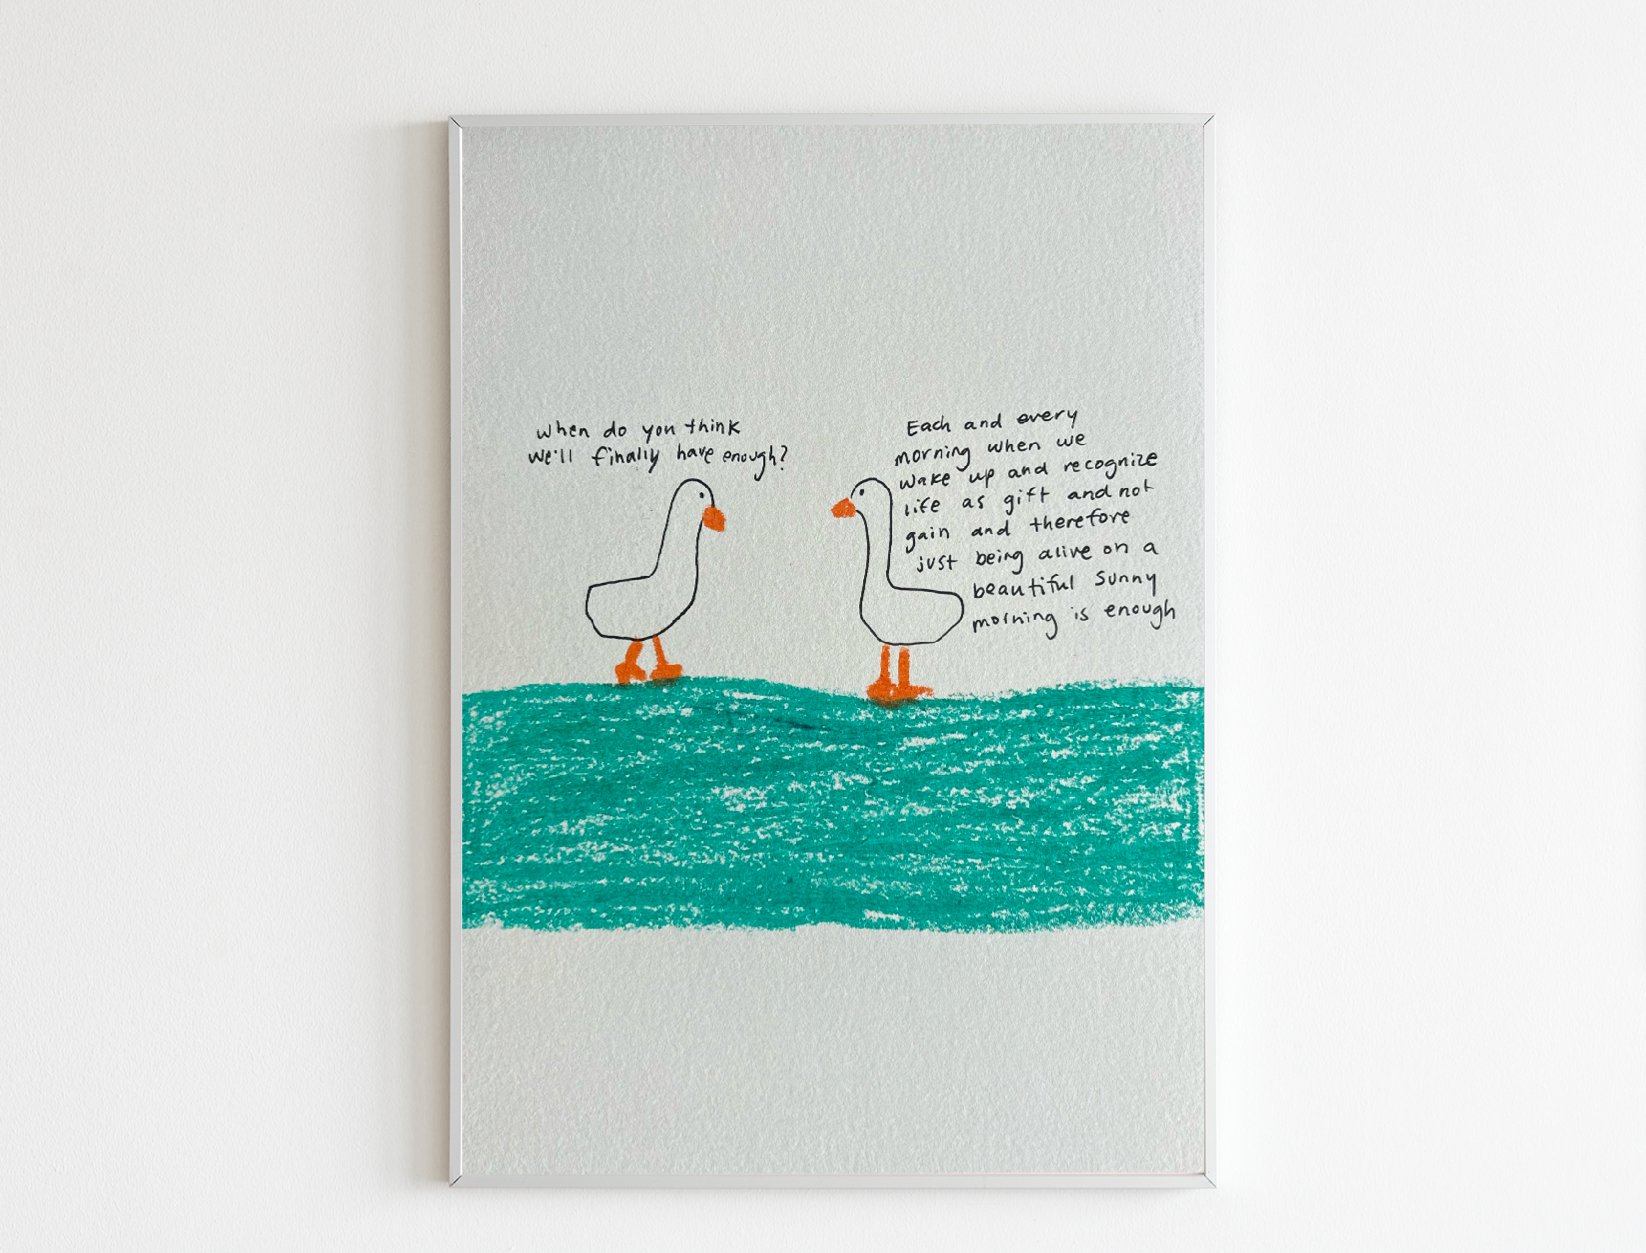 When do you think
We'll finally have enough?
Each and every
morning when we
wake up and recognize
life as gift and not
gain and therefore
just being alive on a
beautiful sunny
morning is enough